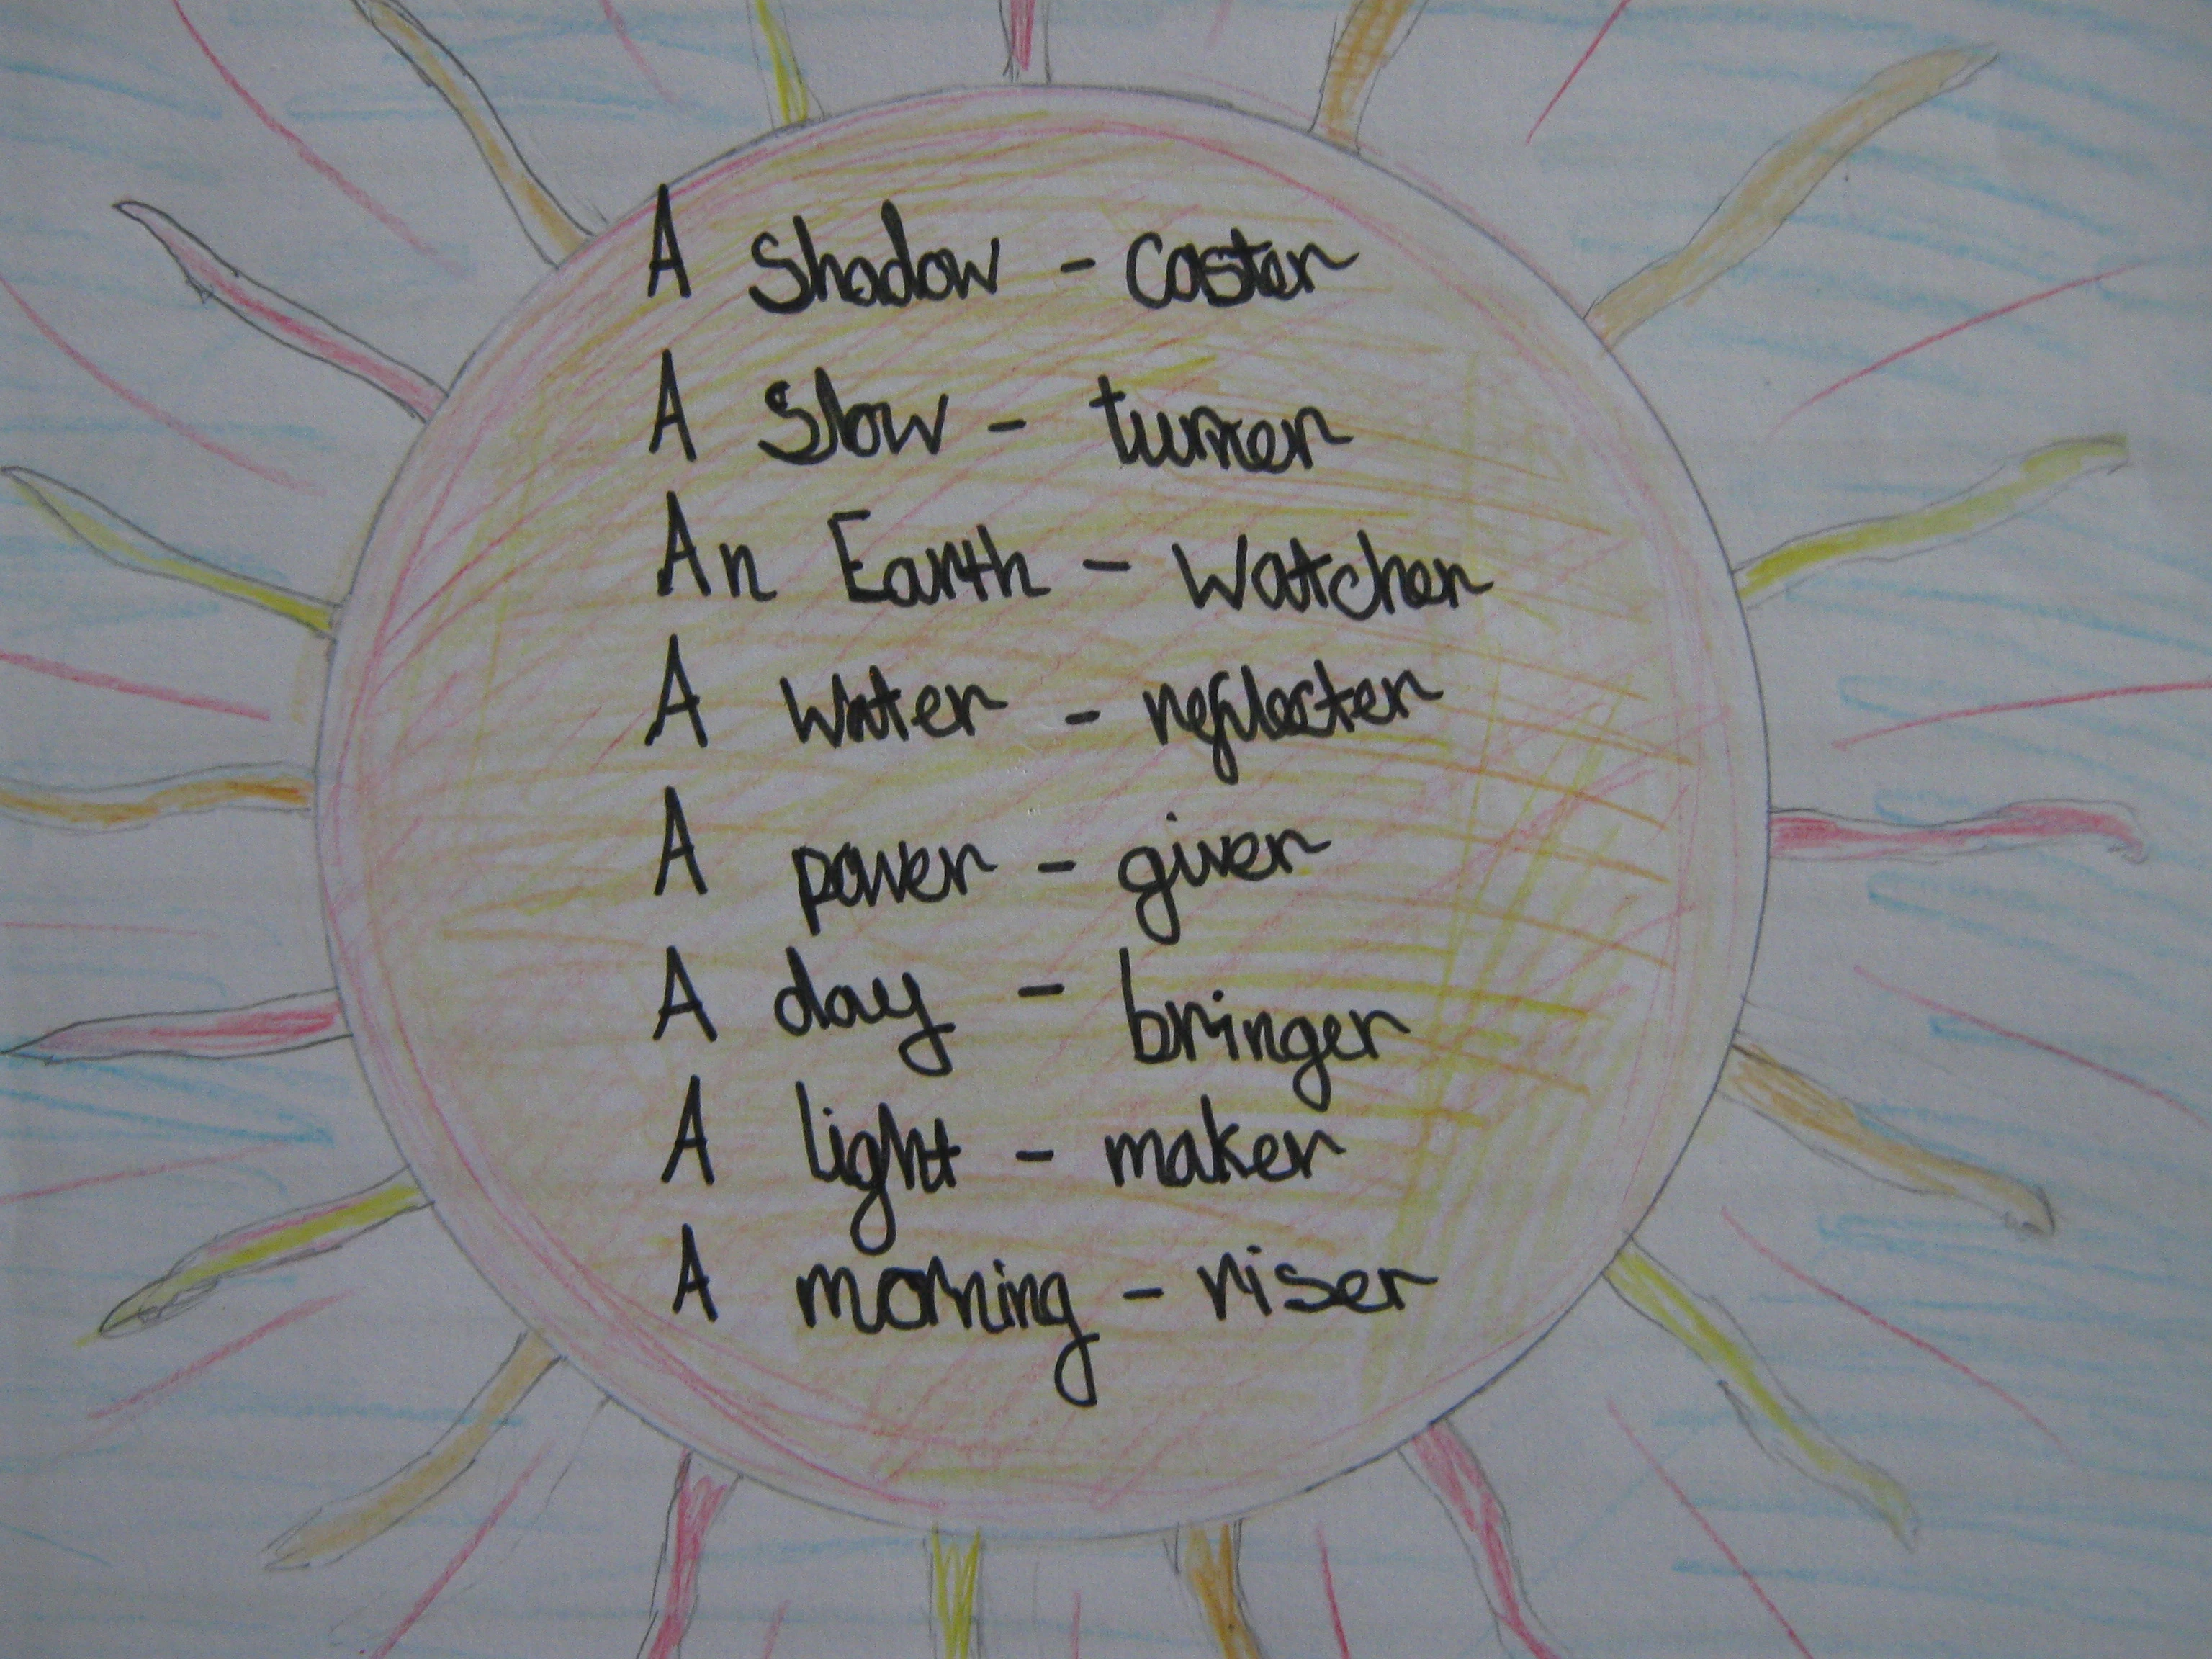 A shadow - caster
A slow - turner
An Earth - Watcher
A water - reflecter
A power - giver
A day - bringer
A light - maker
A morning - riser